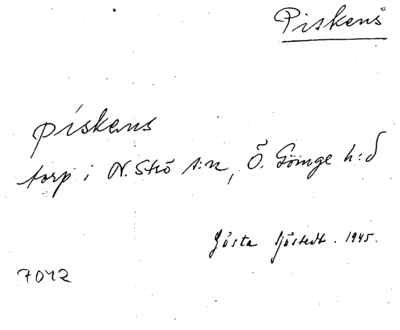 Piskens
piskens
torp i N. Strö s:n, Ö. Göinge h:d
Gösta Sjöstedt. 1945.
7042